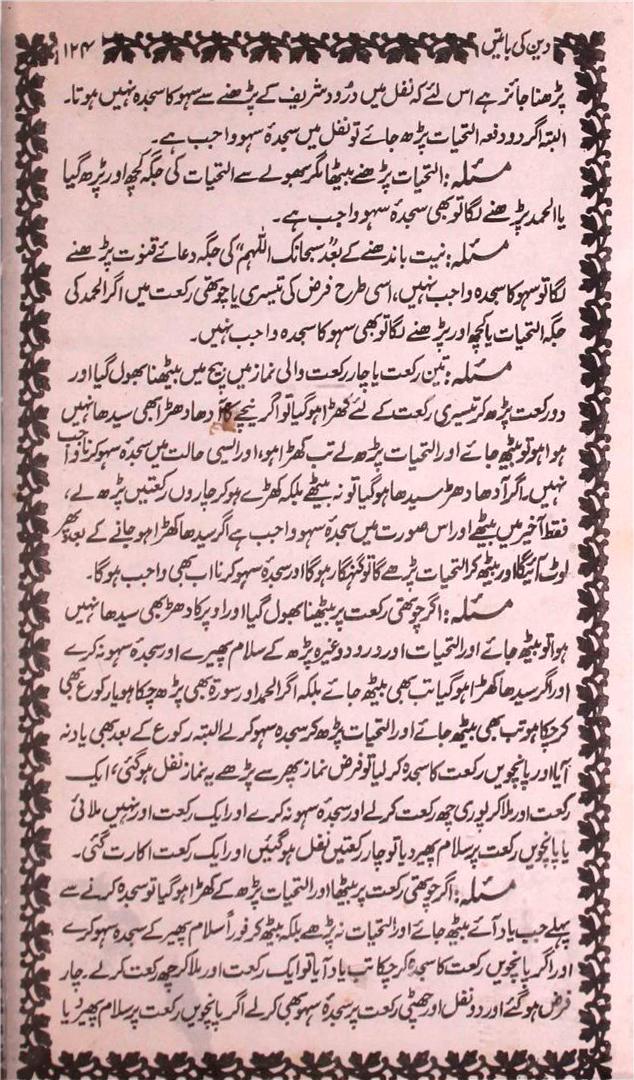 دین کی باتیں ۱۲۴
پڑھنا جائز ہے اس لئے کہ نفل میں درُود شریف کے پڑھنے سے سہو کا سجدہ نہیں ہوتا۔
البتہ اگر دو دفعہ التحیات پڑھ جائے تو نفل میں سجدۂ سہو واجب ہے۔
مسئلہ: التحیات پڑھنے بیٹھا مگر بھولے سے التحیات کی جگہ کچھ اور پڑھ گیا
یا الحمد پڑھنے لگا تو بھی سجدۂ سہو واجب ہے۔
مسئلہ: نیت باندھنے کے بعد "سبحانک اللہم" کی جگہ دعائے قنوت پڑھنے
لگا تو سہو کا سجدہ واجب نہیں، اسی طرح فرض کی تیسری یا چوتھی رکعت میں اگر الحمد کی
جگہ التحیات یا کچھ اور پڑھنے لگا تو بھی سہو کا سجدہ واجب نہیں۔
مسئلہ: تین رکعت یا چار رکعت والی نماز میں بیچ میں بیٹھنا بھول گیا اور
دو رکعت پڑھ کر تیسری رکعت کے لئے کھڑا ہو گیا تو اگر نیچے کا آدھا دھڑ ابھی سیدھا نہیں
ہوا ہو تو بیٹھ جائے اور التحیات پڑھ لے تب کھڑا ہو، اور ایسی حالت میں سجدہ سہو کرنا واجب
نہیں۔ اگر آدھا دھڑ سیدھا ہو گیا تو نہ بیٹھے بلکہ کھڑے ہو کر چاروں رکعتیں پڑھ لے،
فقط آخیر میں بیٹھے اور اس صورت میں سجدۂ سہو واجب ہے اگر سیدھا کھڑا ہو جانے کے بعد پھر
لوٹ آئیگا اور بیٹھ کر التحیات پڑھے گا تو گنہگار ہوگا اور سجدۂ سہو کرنا اب بھی واجب ہوگا۔
مسئلہ: اگر چوتھی رکعت پر بیٹھنا بھول گیا اور اوپر کا دھڑ بھی سیدھا نہیں
ہوا تو بیٹھ جائے اور التحیات اور درود وغیرہ پڑھ کے سلام پھیرے اور سجدۂ سہو نہ کرے
اور اگر سیدھا کھڑا ہو گیا تب بھی بیٹھ جائے بلکہ اگر الحمد اور سورۃ بھی پڑھ چکا ہو یا رکوع بھی
کر چکا ہو تب بھی بیٹھ جائے اور التحیات پڑھ کر سجدہ سہو کر لے البتہ رکوع کے بعد بھی یاد نہ
آیا اور پانچویں رکعت کا سجدہ کر لیا تو فرض نماز پھر سے پڑھے یہ نماز نفل ہو گئی، ایک
رکعت اور ملا کر پوری چھ رکعت کر لے اور سجدہ سہو نہ کرے اور ایک رکعت اور نہیں ملائی
یا پانچویں رکعت پر سلام پھیر دیا تو چار رکعتیں نفل ہو گئیں اور ایک رکعت اکارت گئی۔
مسئلہ: اگر چوتھی رکعت پر بیٹھا اور التحیات پڑھ کے کھڑا ہو گیا تو سجدہ کرنے سے
پہلے جب یاد آئے بیٹھ جائے اور التحیات نہ پڑھے بلکہ بیٹھ کر فوراً سلام پھیر کے سجدہ سہو کرے
اور اگر پانچویں رکعت کا سجدہ کر چکا تب یاد آیا تو ایک رکعت اور ملا کر چھ رکعت کر لے۔ چار
فرض ہو گئے اور دو نفل اور چھٹی رکعت پر سجدۂ سہو بھی کر لے اگر پانچویں رکعت پر سلام پھیر دیا